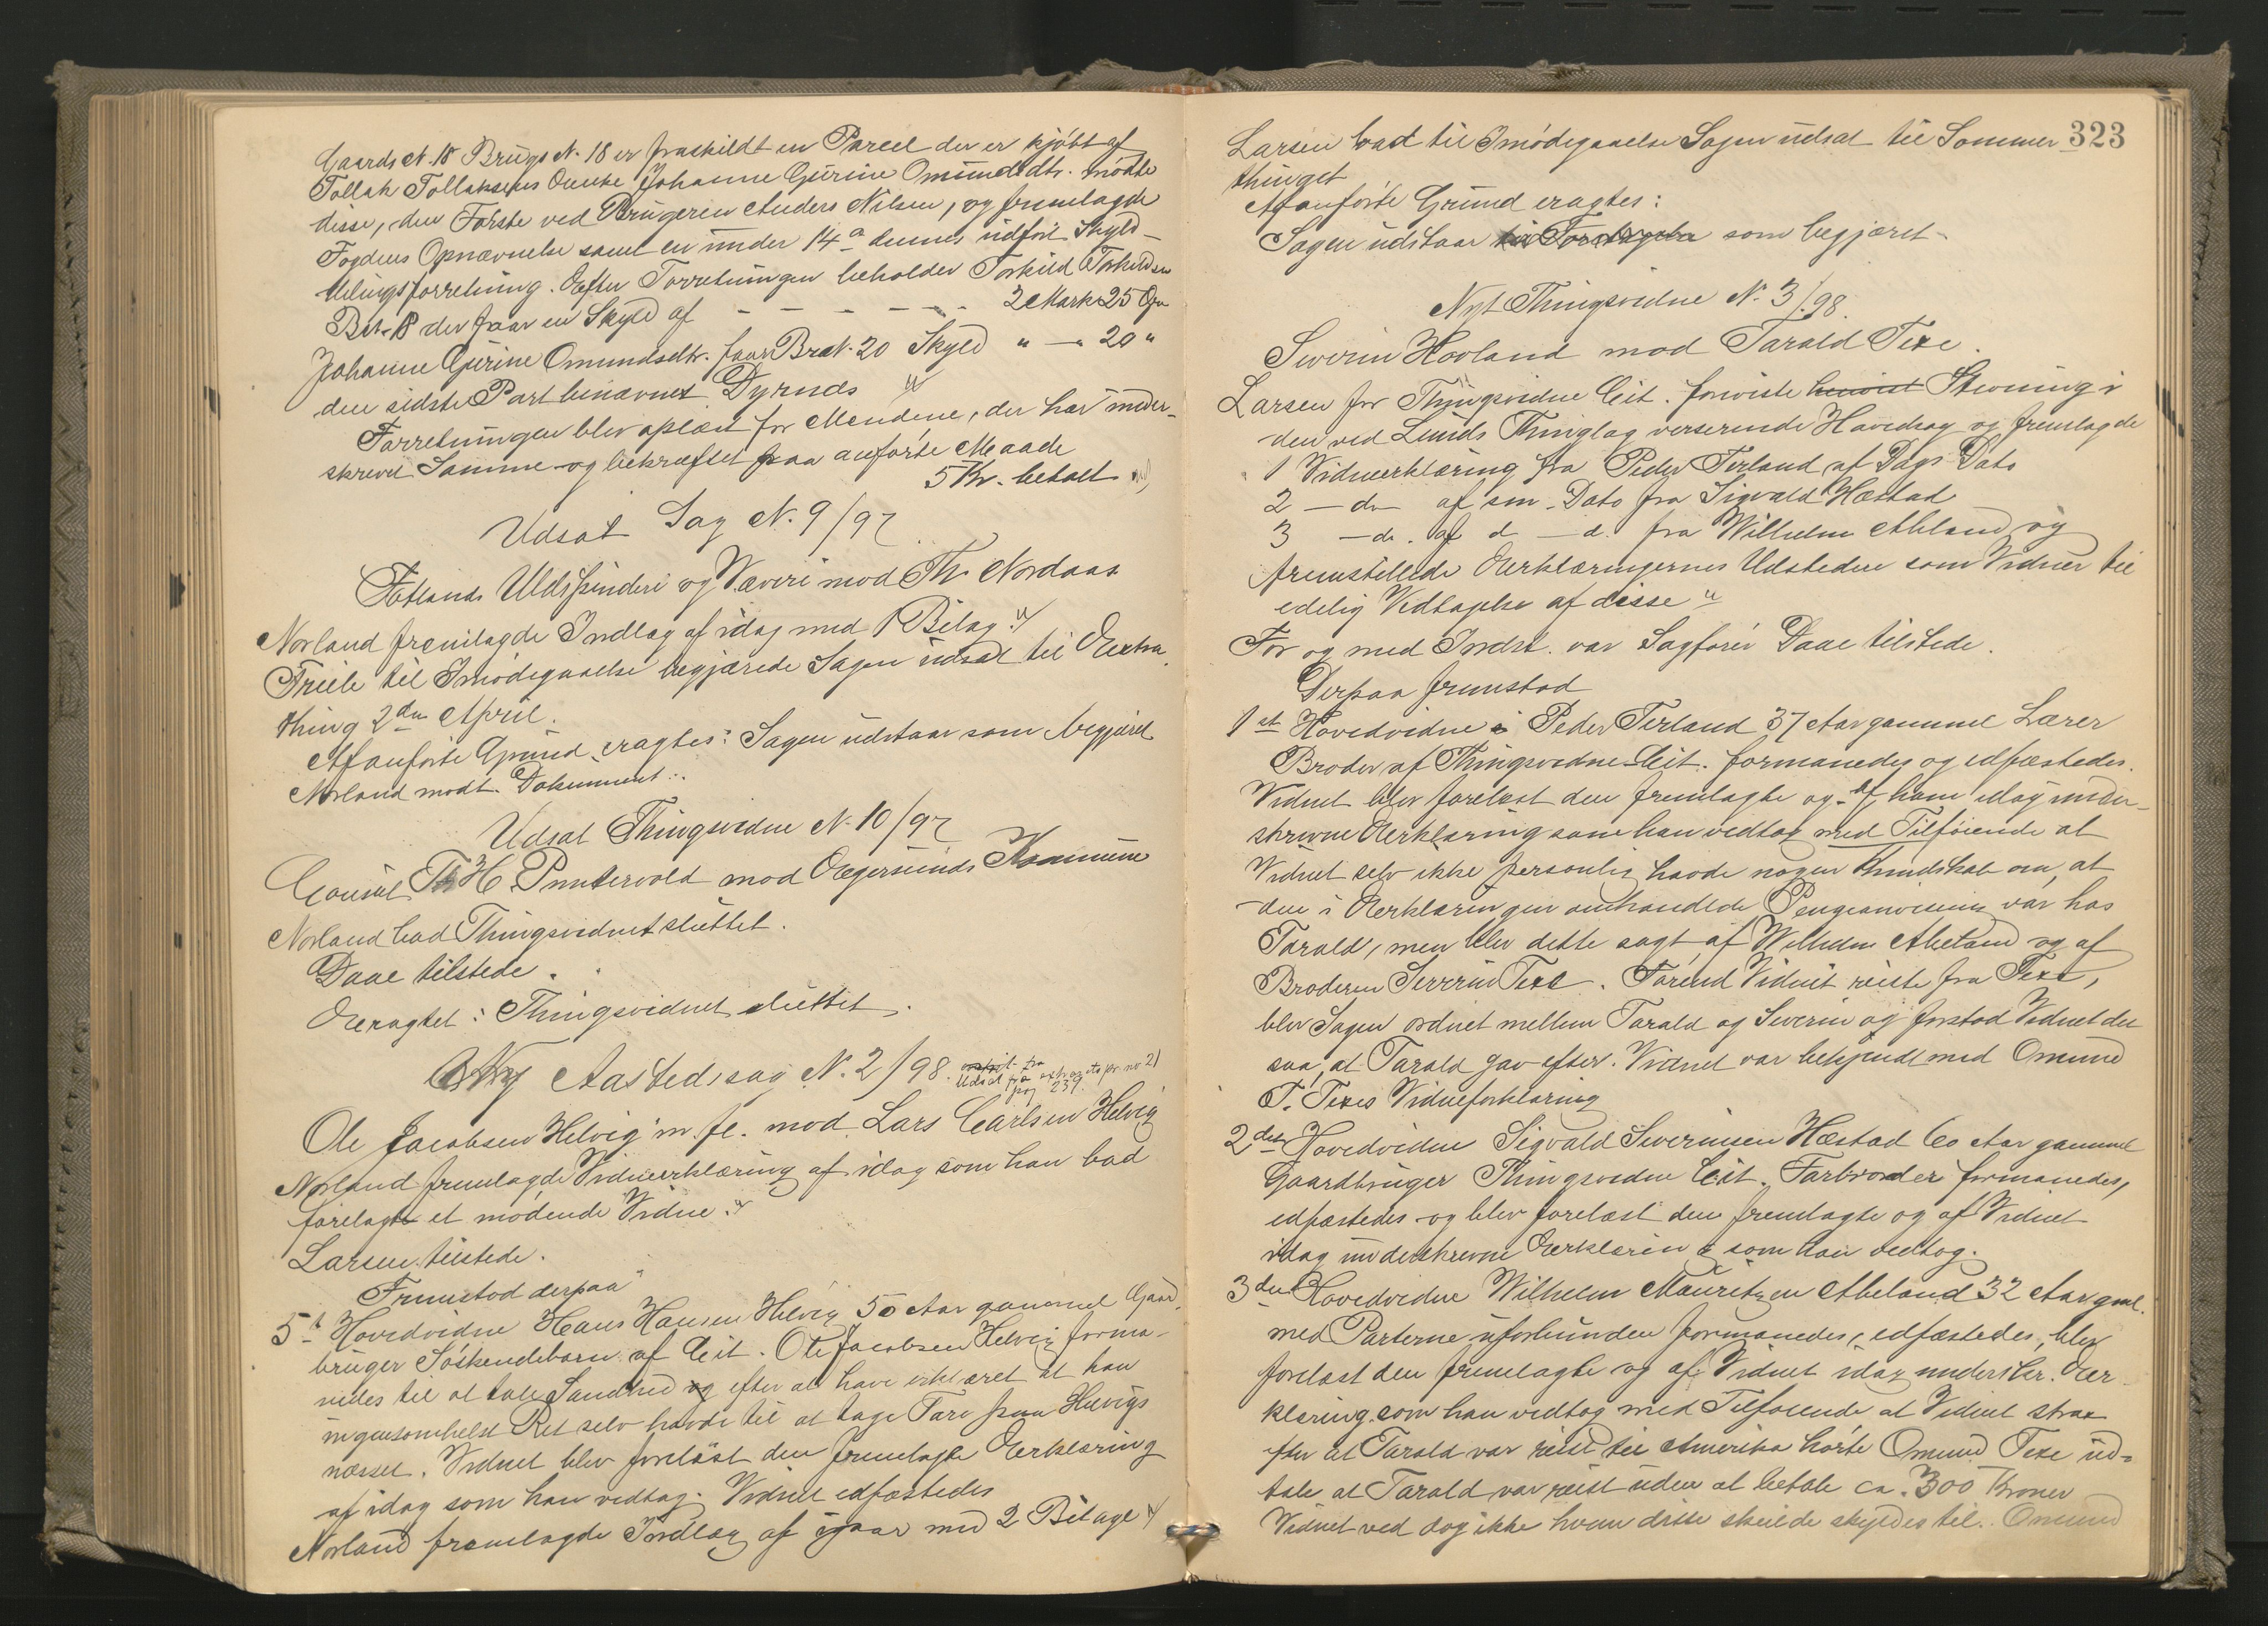 Gaards N. 18 Brugs N. 18 er fraskildt en Parcel der er kjøbt af
Tollak Tollaksens Enke Johanne Gurine Omundsdtr. mødte
disse, den Første ved Brugeren Anders Nilsen, og fremlagde
Fogdens Opnævnelse samt en under 14 a dennes udført Skyld-
delingsforretning. Efter Forretningen beholder Torkild Torkildsen
Br.N. 18 der faar en Skyld af - - - - - 2 Mark 25 Øre
Johanne Gurine Omundsdtr. faar Br.N. 20 Skyld " - " 20 "
den sidste Part benævnet Dyrnds
Forretningen blev oplæst for Mændene, der har under-
skrevet Samme og bekræftet paa anførte Maade
5 Kr. betalt
Udsat Sag N. 9/97
Fotlands Uldspinderi og Væveri mod Th. Nordaas
Norland fremlagde Indlæg af idag med 1 Bilag
Friele til Imødegaaelse begjærede Sagen udsat til Extra
thing 2den April.
Af anførte Grund eragtes: Sagen udstaar som begjæret
Norland modt. Dokument..
Udsat Thingsvidne N. 10/97
Consul Th H. Puntervold mod Egersunds Kommune
Norland bad Thingsvidnet sluttet.
Daae tilstede.
Eragtet: Thingsvidnet sluttet.
Ny Aastedssag N. 2/98. Udsat fra
extra pr no 21
pag 239.
Ole Jacobsen Helvig m. fl. mod Lars Carlsen Helvig
Norland fremlagde Vidneerklæring af idag som han bad
forelagt et mødende Vidne
Larsen tilstede.
Fremstod derpaa
5t Hovedvidne Hans Hansen Helvig 50 Aar gammel Gaard-
bruger Søskendebarn af Cit. Ole Jacobsen Helvig forma-
nedes til at tale Sandhed og efter at have erklæret at han
ingensomhelst Ret selv havde til at tage Tare paa Helvigs
næsset. Vidnet blev foreläst den fremlagte Erklæring
af idag som han vedtog. Vidnet edfæstedes
Norland fremlagde Indlæg af igaar med 2 Bilage
323
Larsen bad til Imødegaaelse Sagen udsat til Sommer
thinget
Af anførte Grund eragtes:
Sagen udstaar som begjæret
Nyt Thingsvidne N. 3/98.
Severin Hovland mod Tarald Texe.
Larsen for Thingsvidne Cit. foreviste Stevning i
den ved Lunds Thinglag verserende Hovedsag og fremlagde
1 Vidneerklæring fra Peder Terland af Dags Dato
2 - do - af sm. Dato fra Sigvald Hæstad
3 - do. af d - d. fra Wilhelm Abeland og
fremstillede Erklæringernes Udstedere som Vidner til
edelig Vedtagelse af disse
For og med Indst. var Sagfører Daae tilstede.
Derpaa fremstod
1st Hovedvidne Peder Terland 37 Aar gammel Lærer
Broder af Thingsvidne-Cit. formanedes og edfæstedes.
Vidnet blev forelæst den fremlagte og af ham idag under-
skrevne Erklæring som han vedtog med Tilføiende at
Vidnet selv ikke personlig havde nogen Kundskab om, at
den i Erklæringen omhandlede Pengeanvisning var hos
Tarald, men blev dette sagt af Wilhelm Abeland og af
Broderen Severin Texe. Førend Vidnet reiste fra Texe,
blev Sagen ordnet mellem Tarald og Severin og forstod Vidnet det
saa, at Tarald gav efter. Vidnet var bekjendt med Omund
T. Texes Vidneforklaring
2det Hovedvidne Sigvald Severinsen Hæstad 60 Aar gammel
Gaardbruger Thingsvidne Cit. Farbroder formanedes,
edfæstedes og blev forelæst den fremlagte og af Vidnet
idag underskrevne Erklæring som han vedtog.
3die Hovedvidne Wilhelm Mauritzen Abeland 32 Aar gml.
med Parterne uforbunden formanedes, edfæstedes, blev
forelæst den fremlagte og af Vidnet idag underskr. Er-
klæring som han vedtog med Tilføiende at Vidnet strax
efter at Tarald var reist til Amerika hørte Omund Texe ud-
tale at Tarald var reist uden at betale ca. 300 Kroner
Vidnet ved dog ikke hvem disse skulde skyldes til. Omund